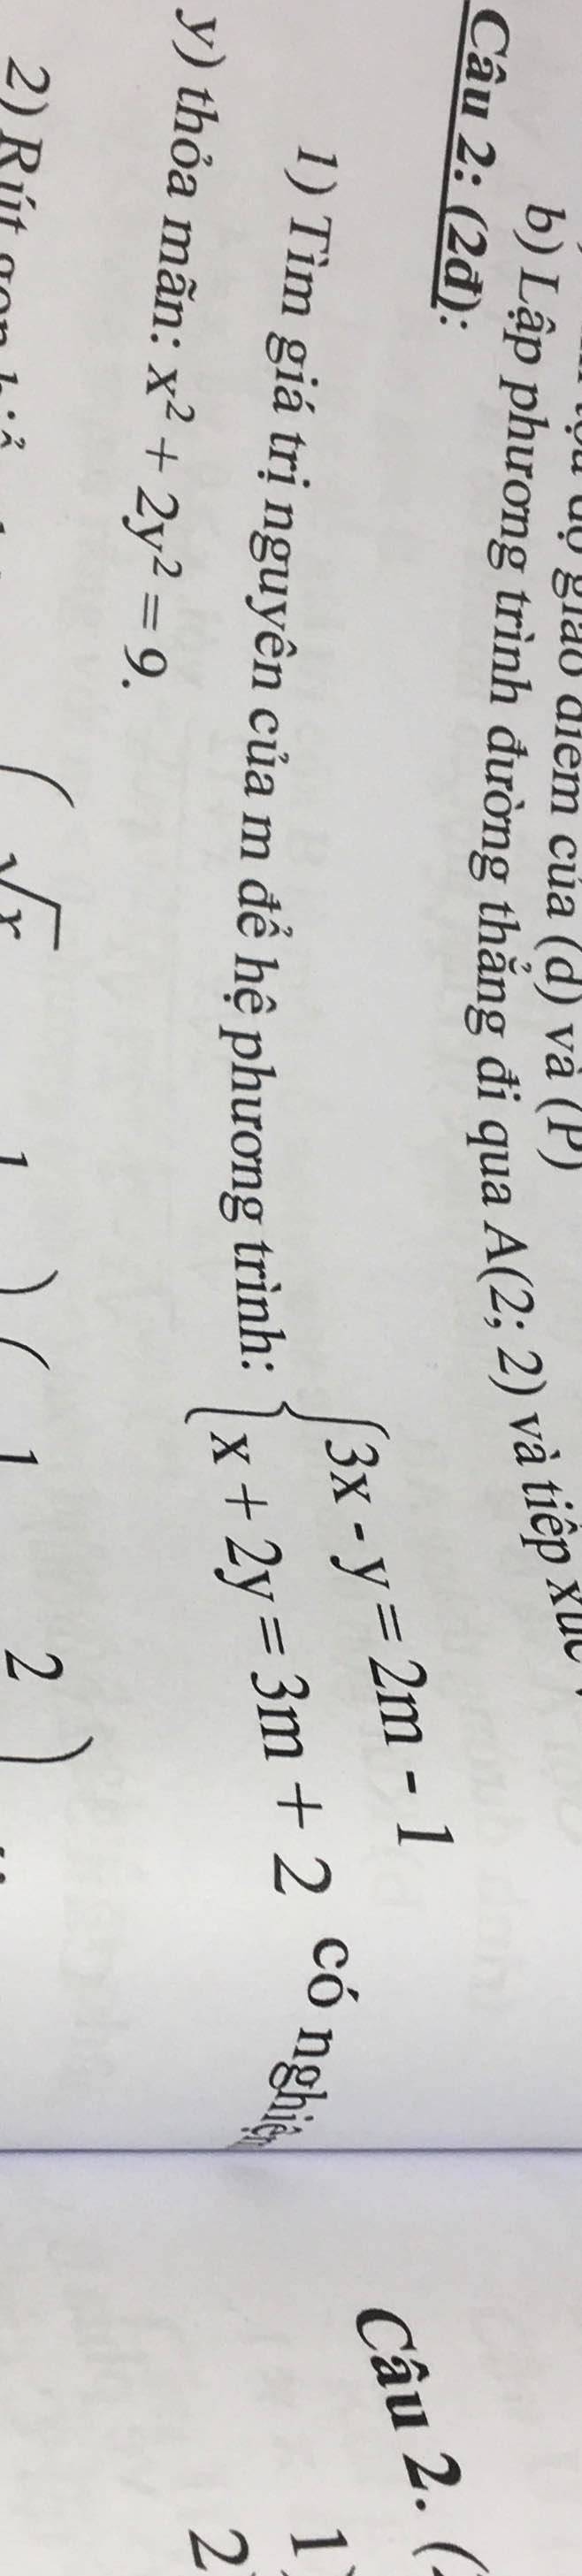 điểm của (d) và (P)
b) Lập phương trình đường thẳng đi qua A(2; 2) và tiếp xúc
Câu 2: (2đ):
1) Tìm giá trị nguyên của m để hệ phương trình: { 3x - y = 2m - 1
x + 2y = 3m + 2 có nghiệm
y) thỏa mãn: x² + 2y² = 9.
2) Rút gọn
√x 1 ) ( 1 2 )
Câu 2. (
1)
2